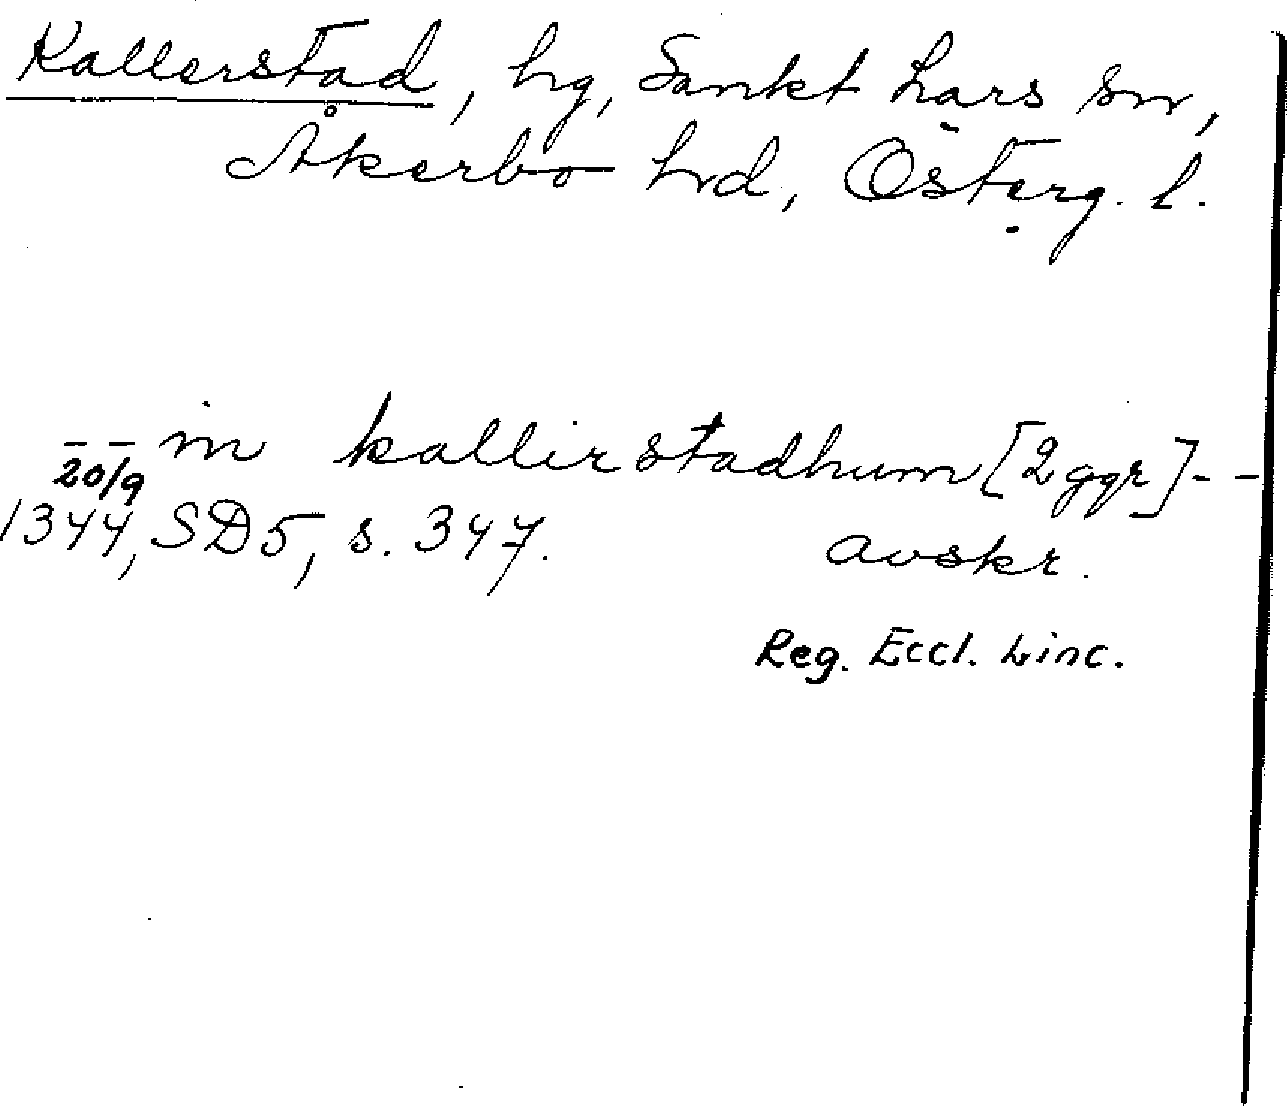 Kallerstad, hg, Sankt Lars sn,
Åkerbo hrd, Österg. l.
- - in kallirstadhum [2 ggr] - -
20/9
1344, SD 5, s. 347. avskr.
Reg. Eccl. Linc.